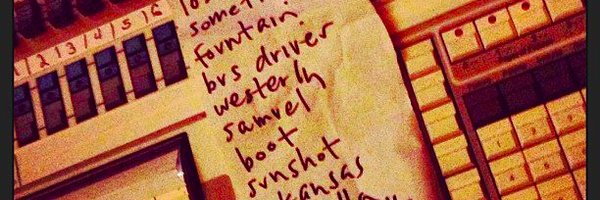 1 2 3 4 5 6
fountain
bus driver
westerly
samuel
boot
sunshot
kansas